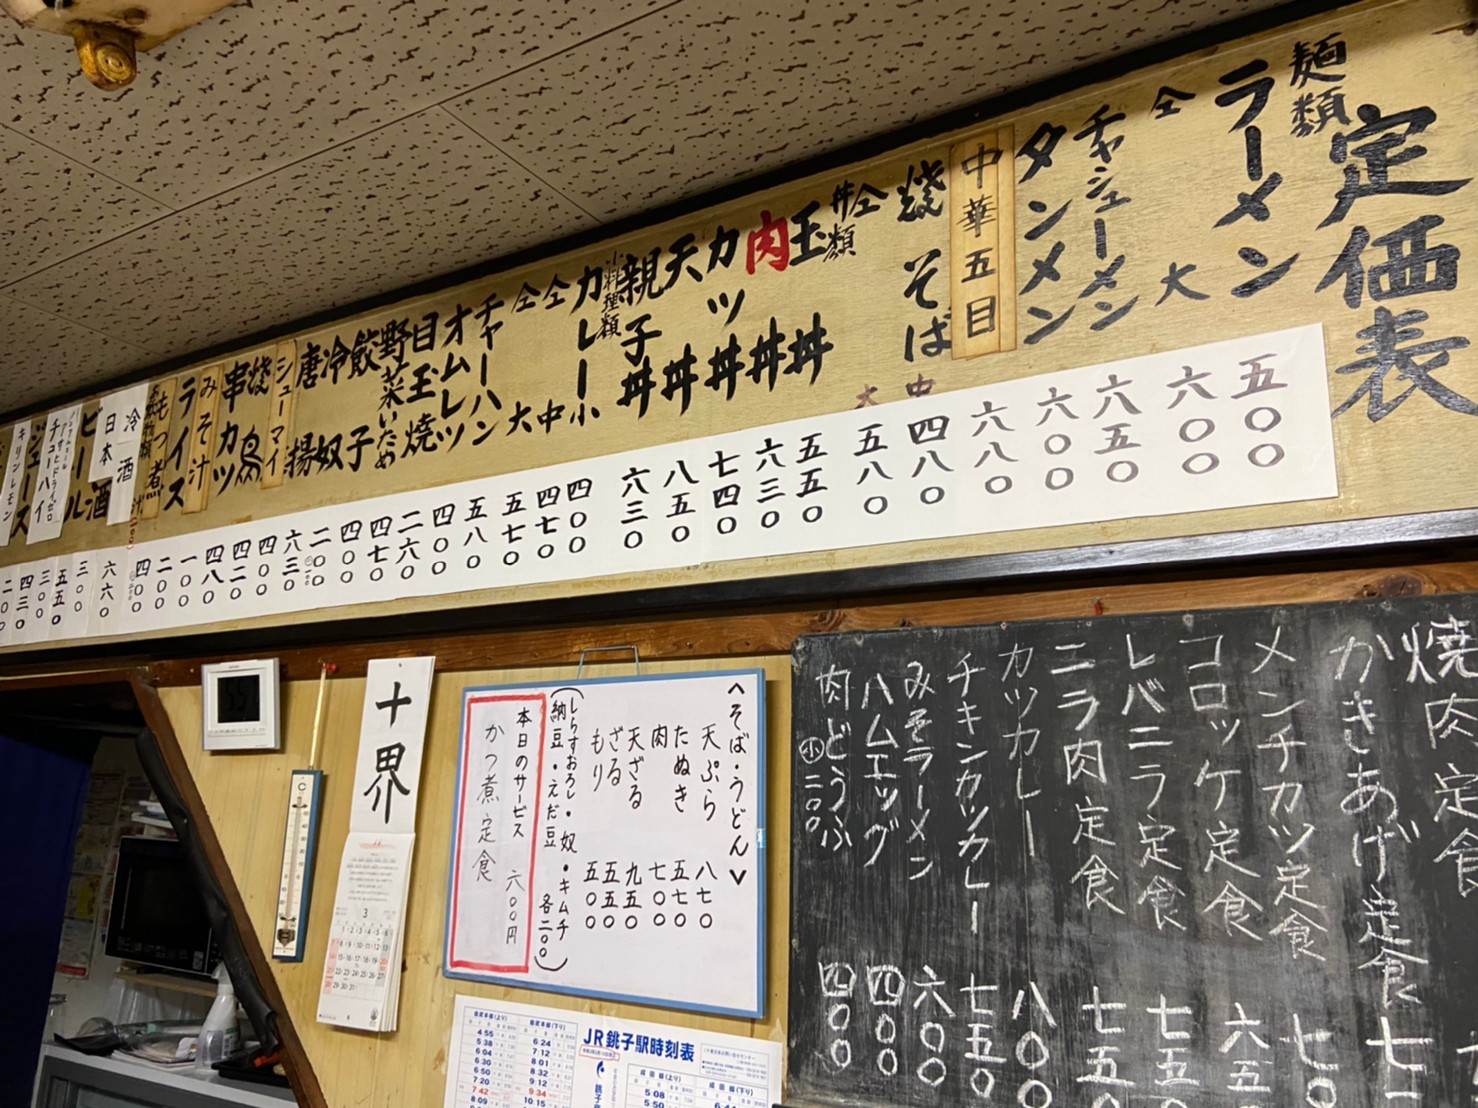 定価表
麺類
ラーメン 五〇〇
仝 大 六〇〇
チャシューメン 六五〇
タンメン 六〇〇
中華五目 六八〇
焼そば 中 四八〇
仝 大 五八〇
丼類
玉丼 五五〇
肉丼 六三〇
カツ丼 七四〇
天丼 八五〇
親子丼 六三〇
小料理類
カレー小 四〇〇
仝 中 四七〇
仝 大 五七〇
チャーハン 五八〇
オムレツ 四〇〇
目玉焼 二六〇
野菜いため 四七〇
餃子 四〇〇
冷奴 二〇〇
唐揚 六三〇
シューマイ 四〇〇
焼鳥 四二〇
串カツ 四八〇
みそ汁 一〇〇
ライス 二〇〇
もつ煮 四〇〇
冷酒
日本酒
ビール
チューハイ
ジュース
キリンレモン
六六〇
三〇〇
五五〇
三〇〇
四三〇
二〇〇
十界
3
<そば・うどん>
天ぷら 八七〇
たぬき 五七〇
肉 七〇〇
天ざる 九五〇
ざる 五五〇
もり 五〇〇
(しらすおろし・奴・キムチ
納豆・えだ豆 各二〇〇)
本日のサービス 六〇〇円
かつ煮定食
焼肉定食
かきあげ定食 七
メンチカツ定食 七〇
コロッケ定食 六五
レバニラ定食 七五
ニラ肉定食 七五〇
カツカレー 八〇〇
チキンカツカレー 七五〇
みそラーメン 六〇〇
ハムエッグ 四〇〇
肉どうふ 四〇〇
小 二〇〇
JR銚子駅時刻表
総武本線(上り)
4 55
5 38
6 04
6 30
6 50
7 20
7 42
8 09
総武本線(下り)
6 24
7 12
8 01
8 32
9 12
9 34
10 15
成田線(上り)
5 08
5 50
成田線(下り)